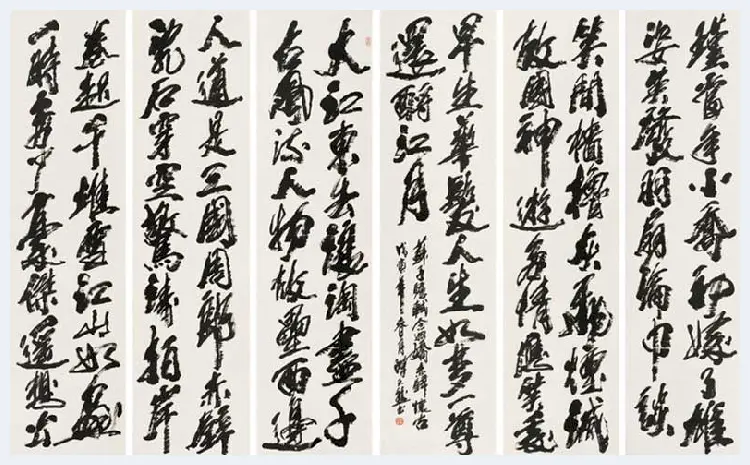 大江東去浪淘盡千
古風流人物故壘西邊
人道是三國周郎赤壁
亂石穿空驚濤拍岸
捲起千堆雪江山如畫
一時多少豪傑遙想公
瑾當年小喬初嫁了雄
姿英發羽扇綸巾談
笑間檣櫓灰飛煙滅
故國神遊多情應笑我
早生華髮人生如夢一尊
還酹江月
蘇子瞻詞念奴嬌赤壁懷古